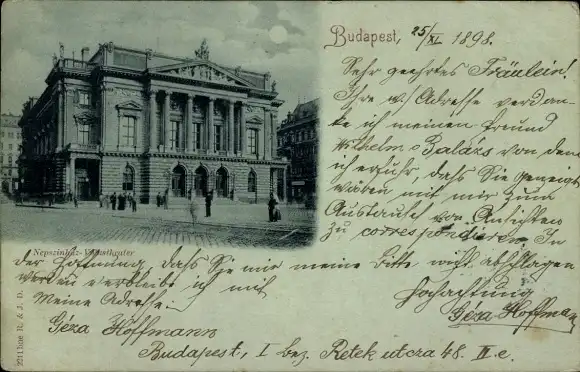 Budapest, 25/XI 1898.
Sehr geehrtes Fräulein!
Ihre w/ Adresse verdan-
ke ich meinen Freund
Wilhelm Balázs von dem
ich erfuhr, dass Sie geneigt
wären mit mir zum
Austausch von Ansichten
zu correspondieren. In
Népszinház-Volkstheater
der Hoffnung, dass Sie mir meine Bitte nicht abschlagen
werden verbleibe ich mit
Hochachtung
Géza Hoffmann
Meine Adresse:
Géza Hoffmann
Budapest, I bez. Retek utcza 48. II. e.
R. & J. D.